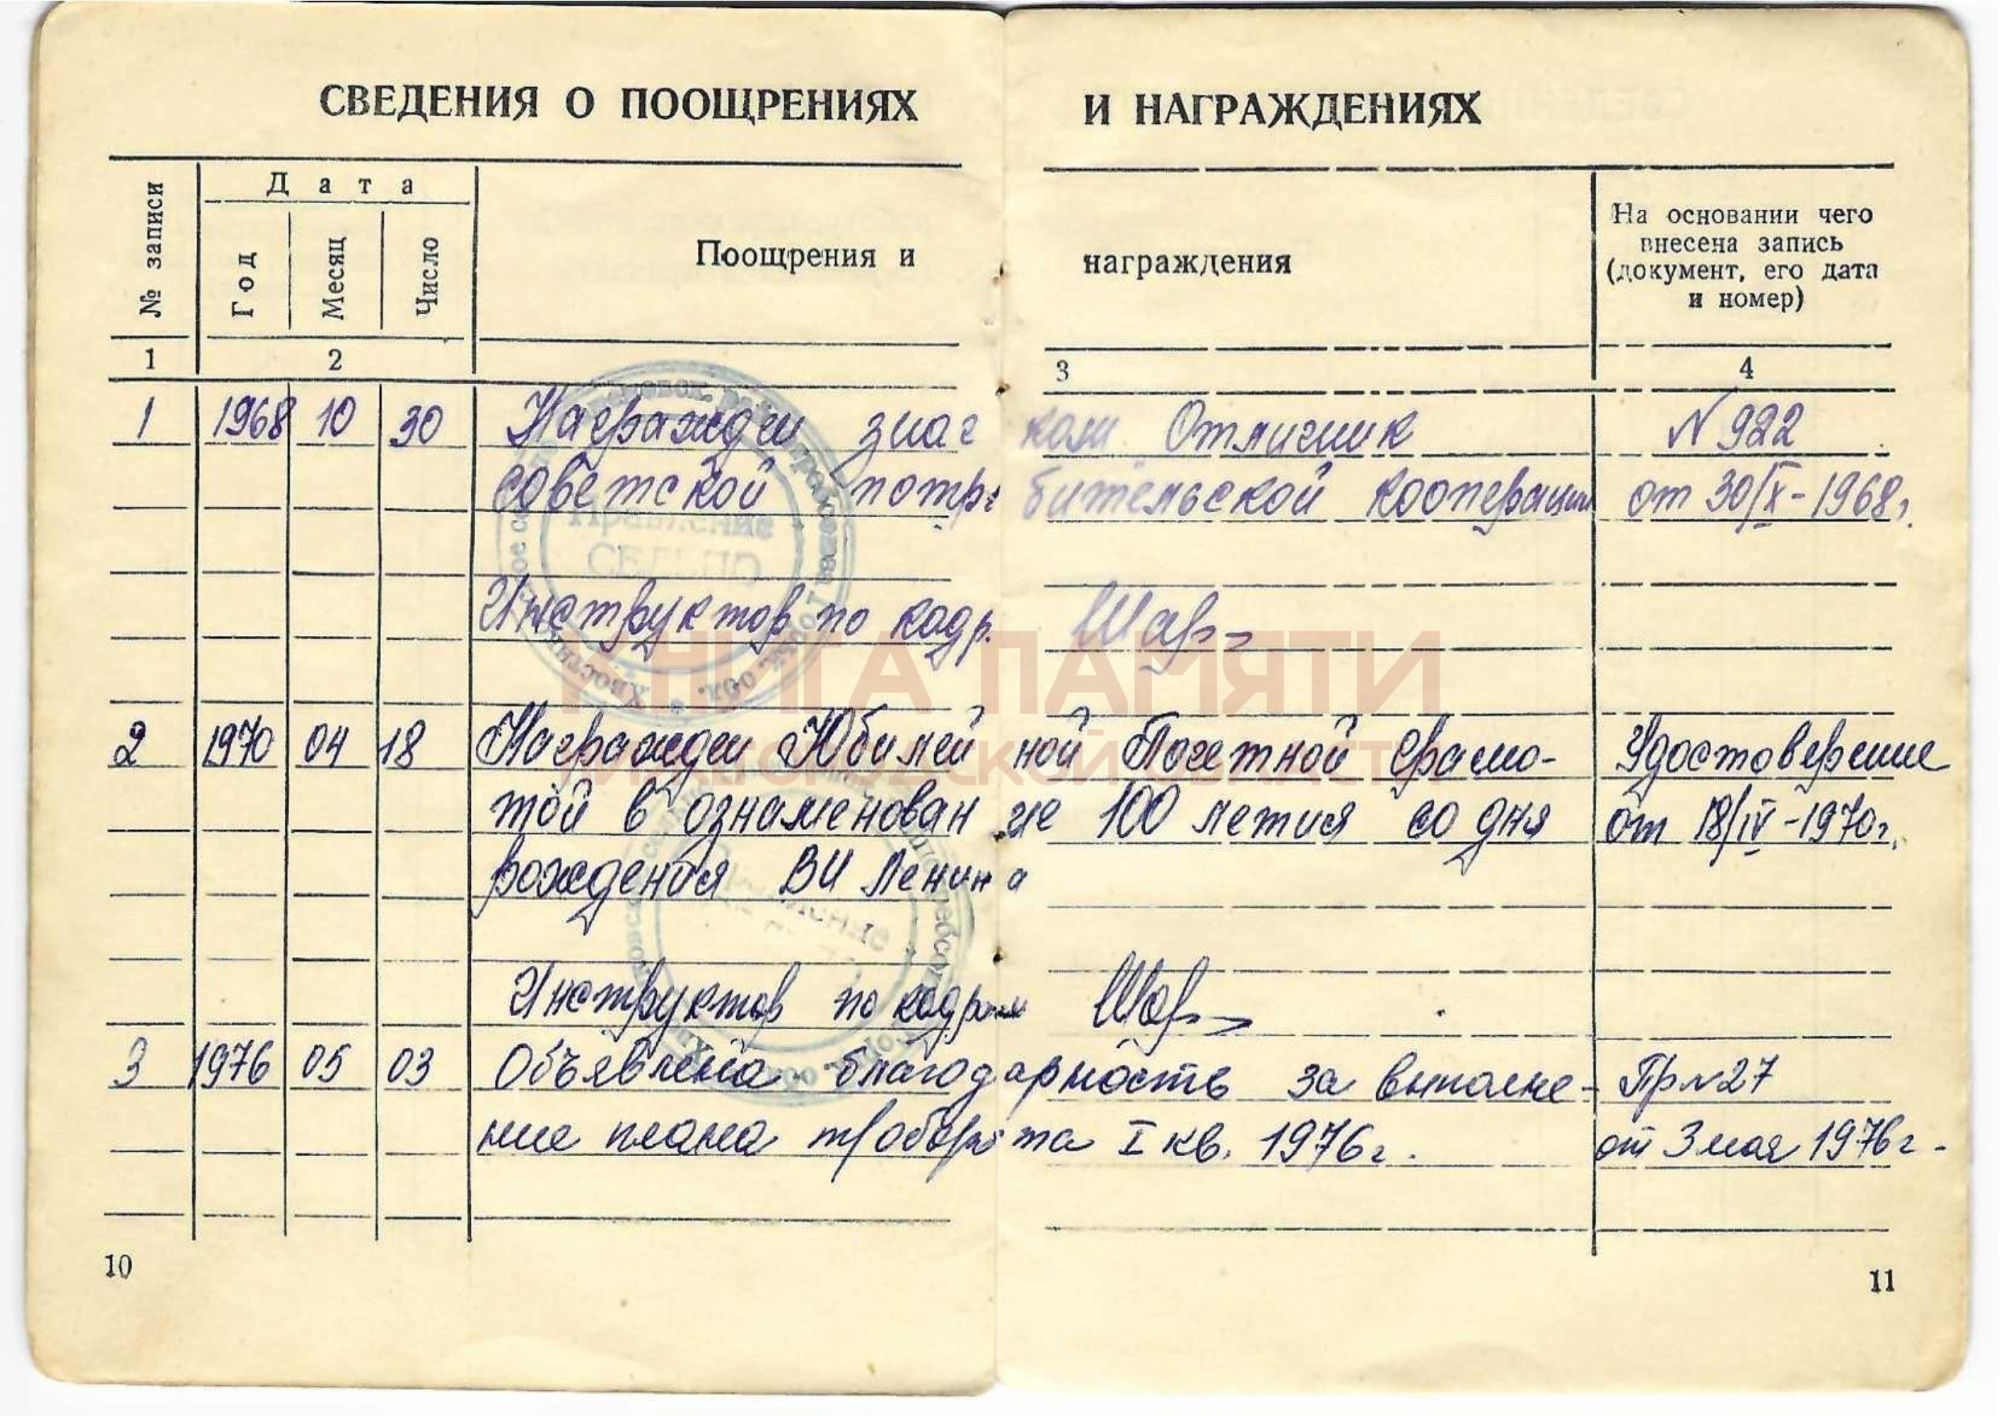 СВЕДЕНИЯ О ПООЩРЕНИЯХ И НАГРАЖДЕНИЯХ
№ записи
Дата
Год
Месяц
Число
Поощрения и награждения
На основании чего
внесена запись
(документ, его дата
и номер)
1 2 3 4
1 1968 10 30 Награжден значком Отличник N 922
советской потребительской кооперации от 30/X-1968г.
Инструктор по кадр.
2 1970 04 18 Награжден Юбилейной Почетной грамо- Удостоверение
той в ознаменование 100 летия со дня от 18/IV-1970г.
рождения ВИ Ленина
Инструктор по кадрам
3 1976 05 03 Объявлена благодарность за выполне- Пр N 27
ние плана т/оборота I кв. 1976г. от 3 мая 1976г.
10
11
Правление
СЕЛЬПО
КНИГА ПАМЯТИ
НИЖЕГОРОДСКОЙ ОБЛАСТИ